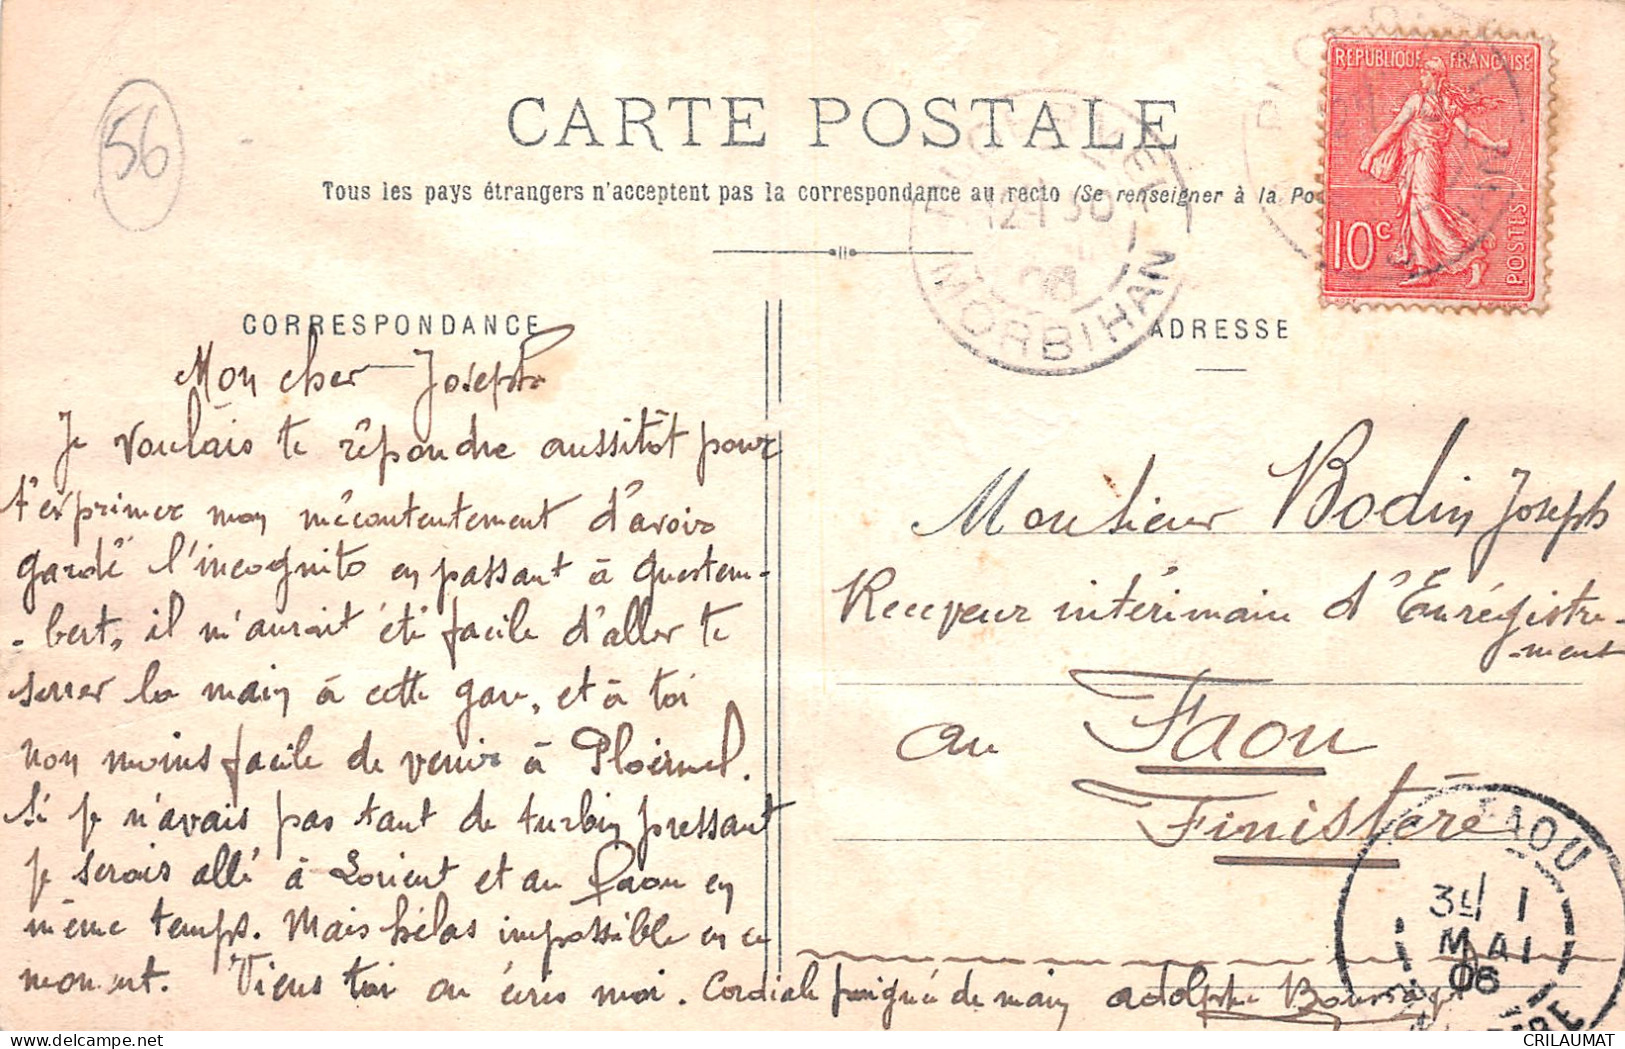 56
CARTE POSTALE
Tous les pays étrangers n'acceptent pas la correspondance au recto (Se renseigner à la Po
REPUBLIQUE FRANÇAISE
10c
POSTES
12-1 30
06
MORBIHAN
CORRESPONDANCE
ADRESSE
Mon cher Joseph
Je voulais te répondre aussitôt pour
t'exprimer mon mécontentement d'avoir
gardé l'incognito en passant à Questem-
-bert, il m'aurait été facile d'aller te
serrer la main à cette gare, et à toi
non moins facile de venir à Ploërmel.
Si je n'avais pas tant de turbin pressant
je serais allé à Lorient et au Faou en
même temps. Mais hélas impossible en ce
moment. Viens toi ou écris moi. Cordiale poignée de main Adolphe
Monsieur Bodin Joseph
Receveur intérimaire d'Enrégistre-
-ment
au Faou
Finistère
FAOU
3E 1
MAI
06
CRILAUMAT